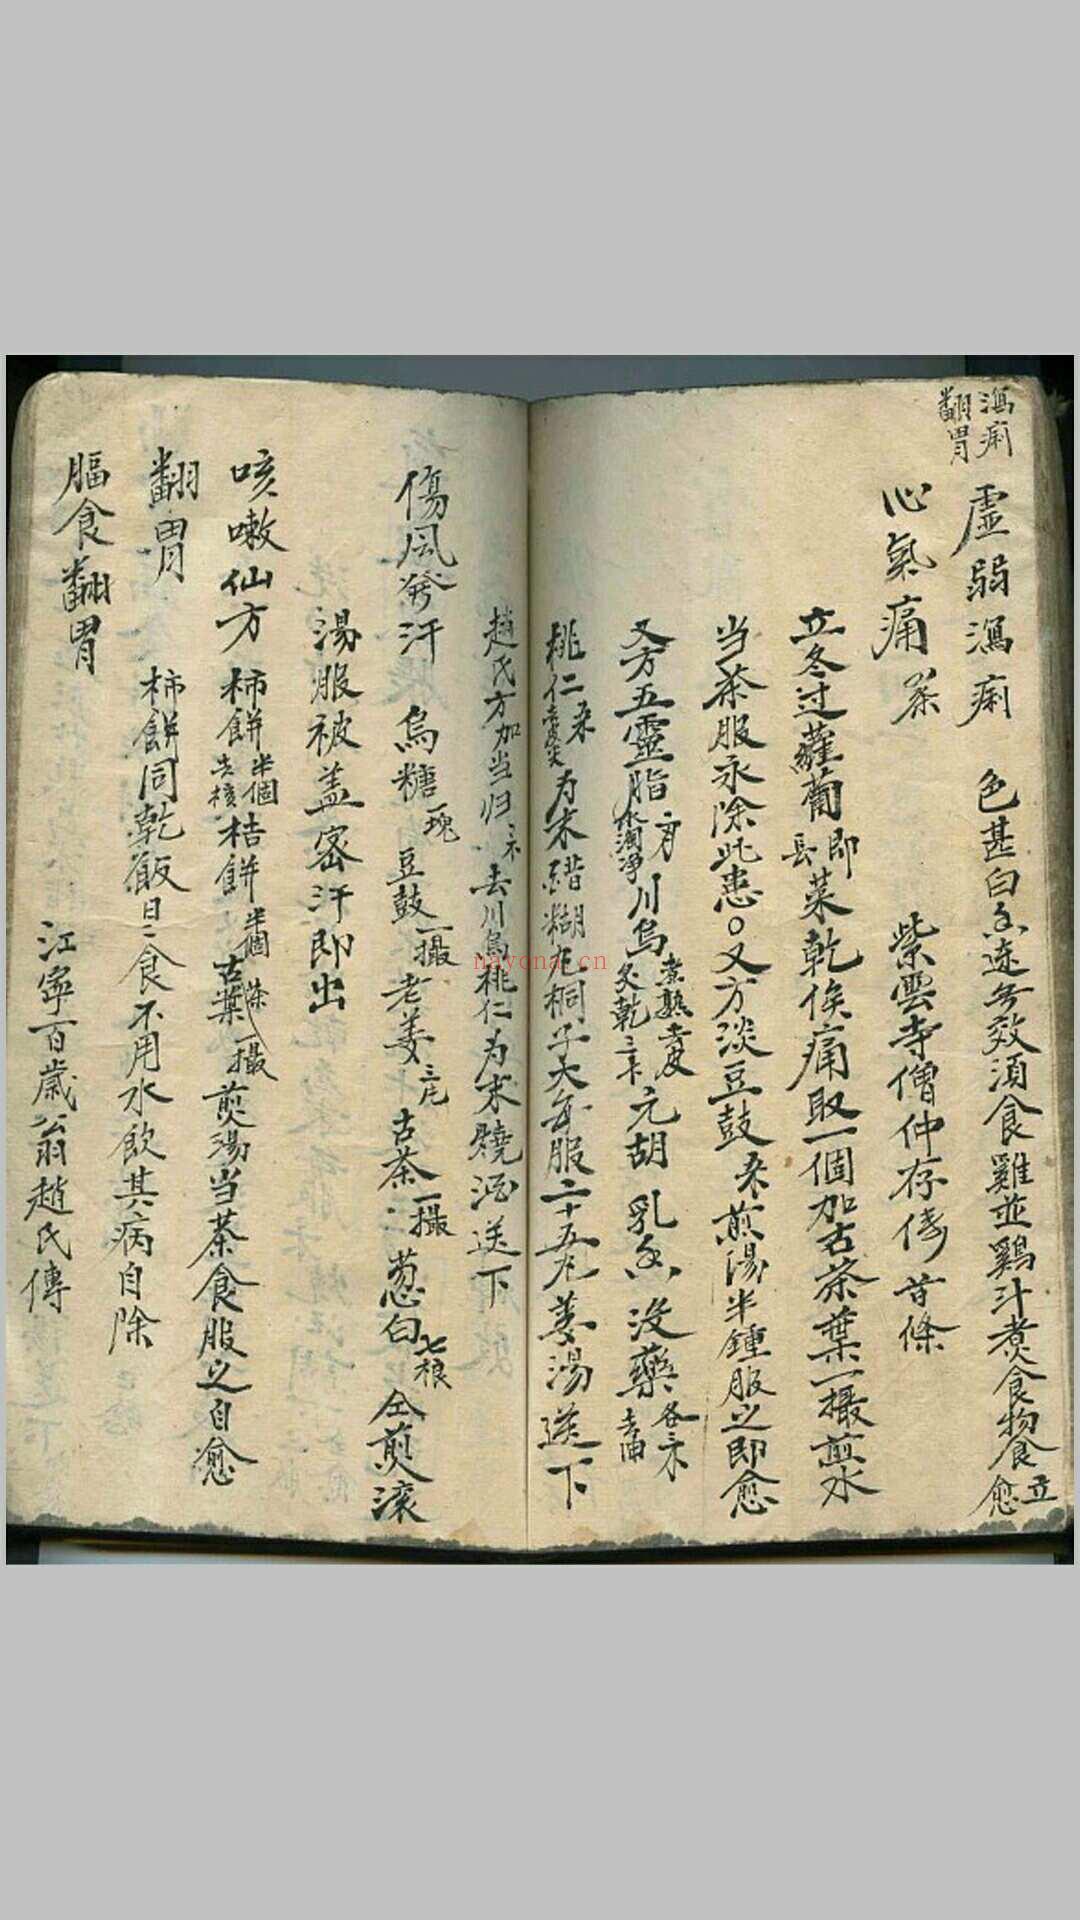 瀉痢
翻胃
虛弱瀉痢 色甚白 速 效須食雞並鷄汁煮食物食立愈
心氣痛茶 紫雲寺僧仲存傳 條
立冬过蘿蔔即長菜乾俟痛取一個加古茶葉一撮煎水
当茶服永除此患○又方淡豆鼓 煎湯半鍾服之即愈
又方五靈脂水淘淨 川烏煮熟去皮炙乾 元胡 乳香 沒藥各 去油
桃仁 去皮尖 为末醋糊丸桐子大每服二十五丸姜湯送下
趙氏方加当归 去川烏桃仁为末燒酒送下
傷風發汗 烏糖一塊 豆鼓一撮 老姜三片 古茶一撮 葱白七根 仝煎滚
湯服被盖密汗即出
咳嗽仙方 柿餅半個去核 桔餅半個 古茶葉一撮 煎湯当茶食服之自愈
翻胃 柿餅同乾飯日日食不用水飲其病自除
膈食翻胃 江寧百歲翁趙氏傳
nayona.cn